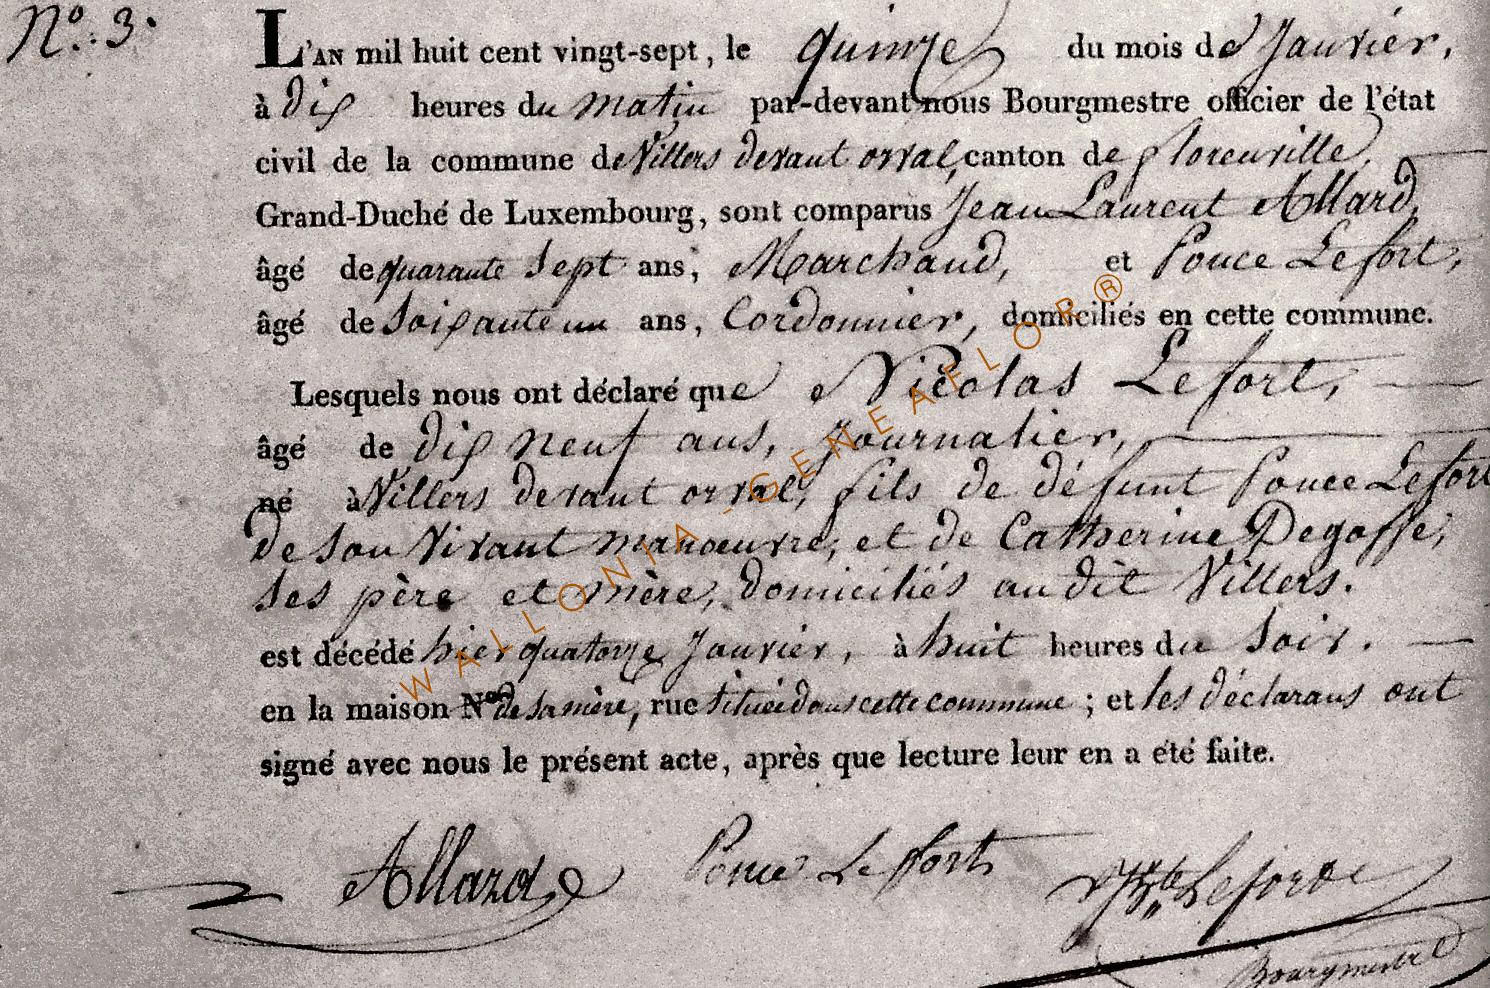 N.º 3.
L'AN mil huit cent vingt-sept, le quinze du mois de Janvier,
à dix heures du matin par-devant nous Bourgmestre officier de l'état
civil de la commune de Villers devant orval, canton de florenville,
Grand-Duché de Luxembourg, sont comparus Jean Laurent Allard,
âgé de quarante sept ans, Marchand, et Ponce Lefort,
âgé de Soixante un ans, Cordonnier, domiciliés en cette commune.
Lesquels nous ont déclaré que Nicolas Lefort,
âgé de dix neuf ans, Journalier,
né à Villers devant orval, fils de défunt Ponce Lefort
de Son Vivant manoeuvre, et de Catherine Degoffe,
Ses père et mère, domiciliés au dit Villers.
est décédé hier quatorze Janvier, à huit heures du Soir.
en la maison N.º de Sa mère, rue Située dans cette commune ; et les déclarans ont
signé avec nous le présent acte, après que lecture leur en a été faite.
Allard Ponce Lefort Leforde
Bourgmestre
WALLONIA-GENEAFLOR®